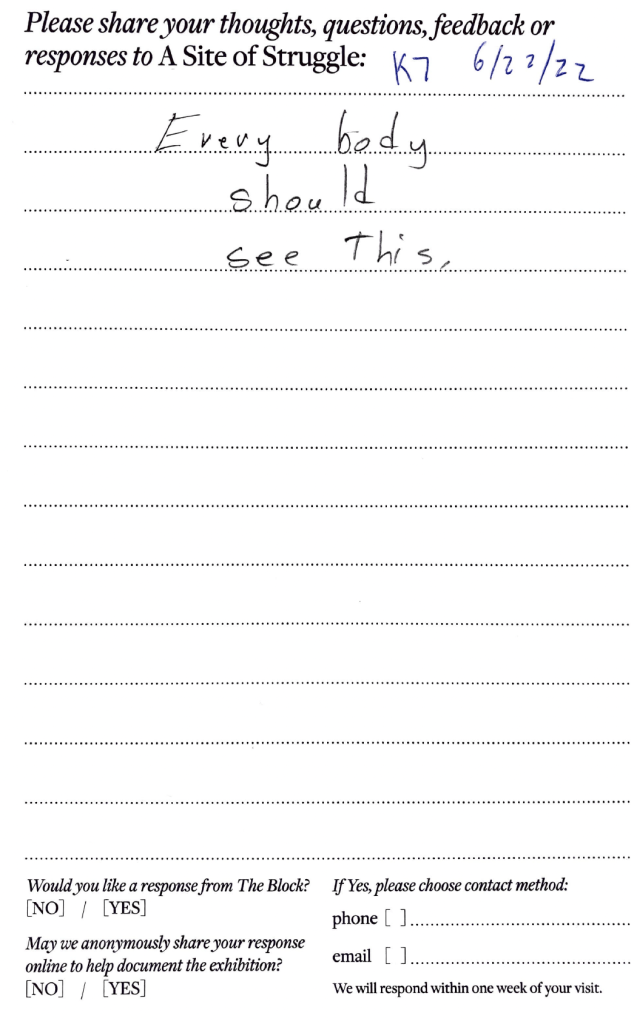 Please share your thoughts, questions, feedback or
responses to A Site of Struggle: K7 6/22/22
Every body
should
see This.
Would you like a response from The Block?
[NO] / [YES]
May we anonymously share your response
online to help document the exhibition?
[NO] / [YES]
If Yes, please choose contact method:
phone [ ]
email [ ]
We will respond within one week of your visit.